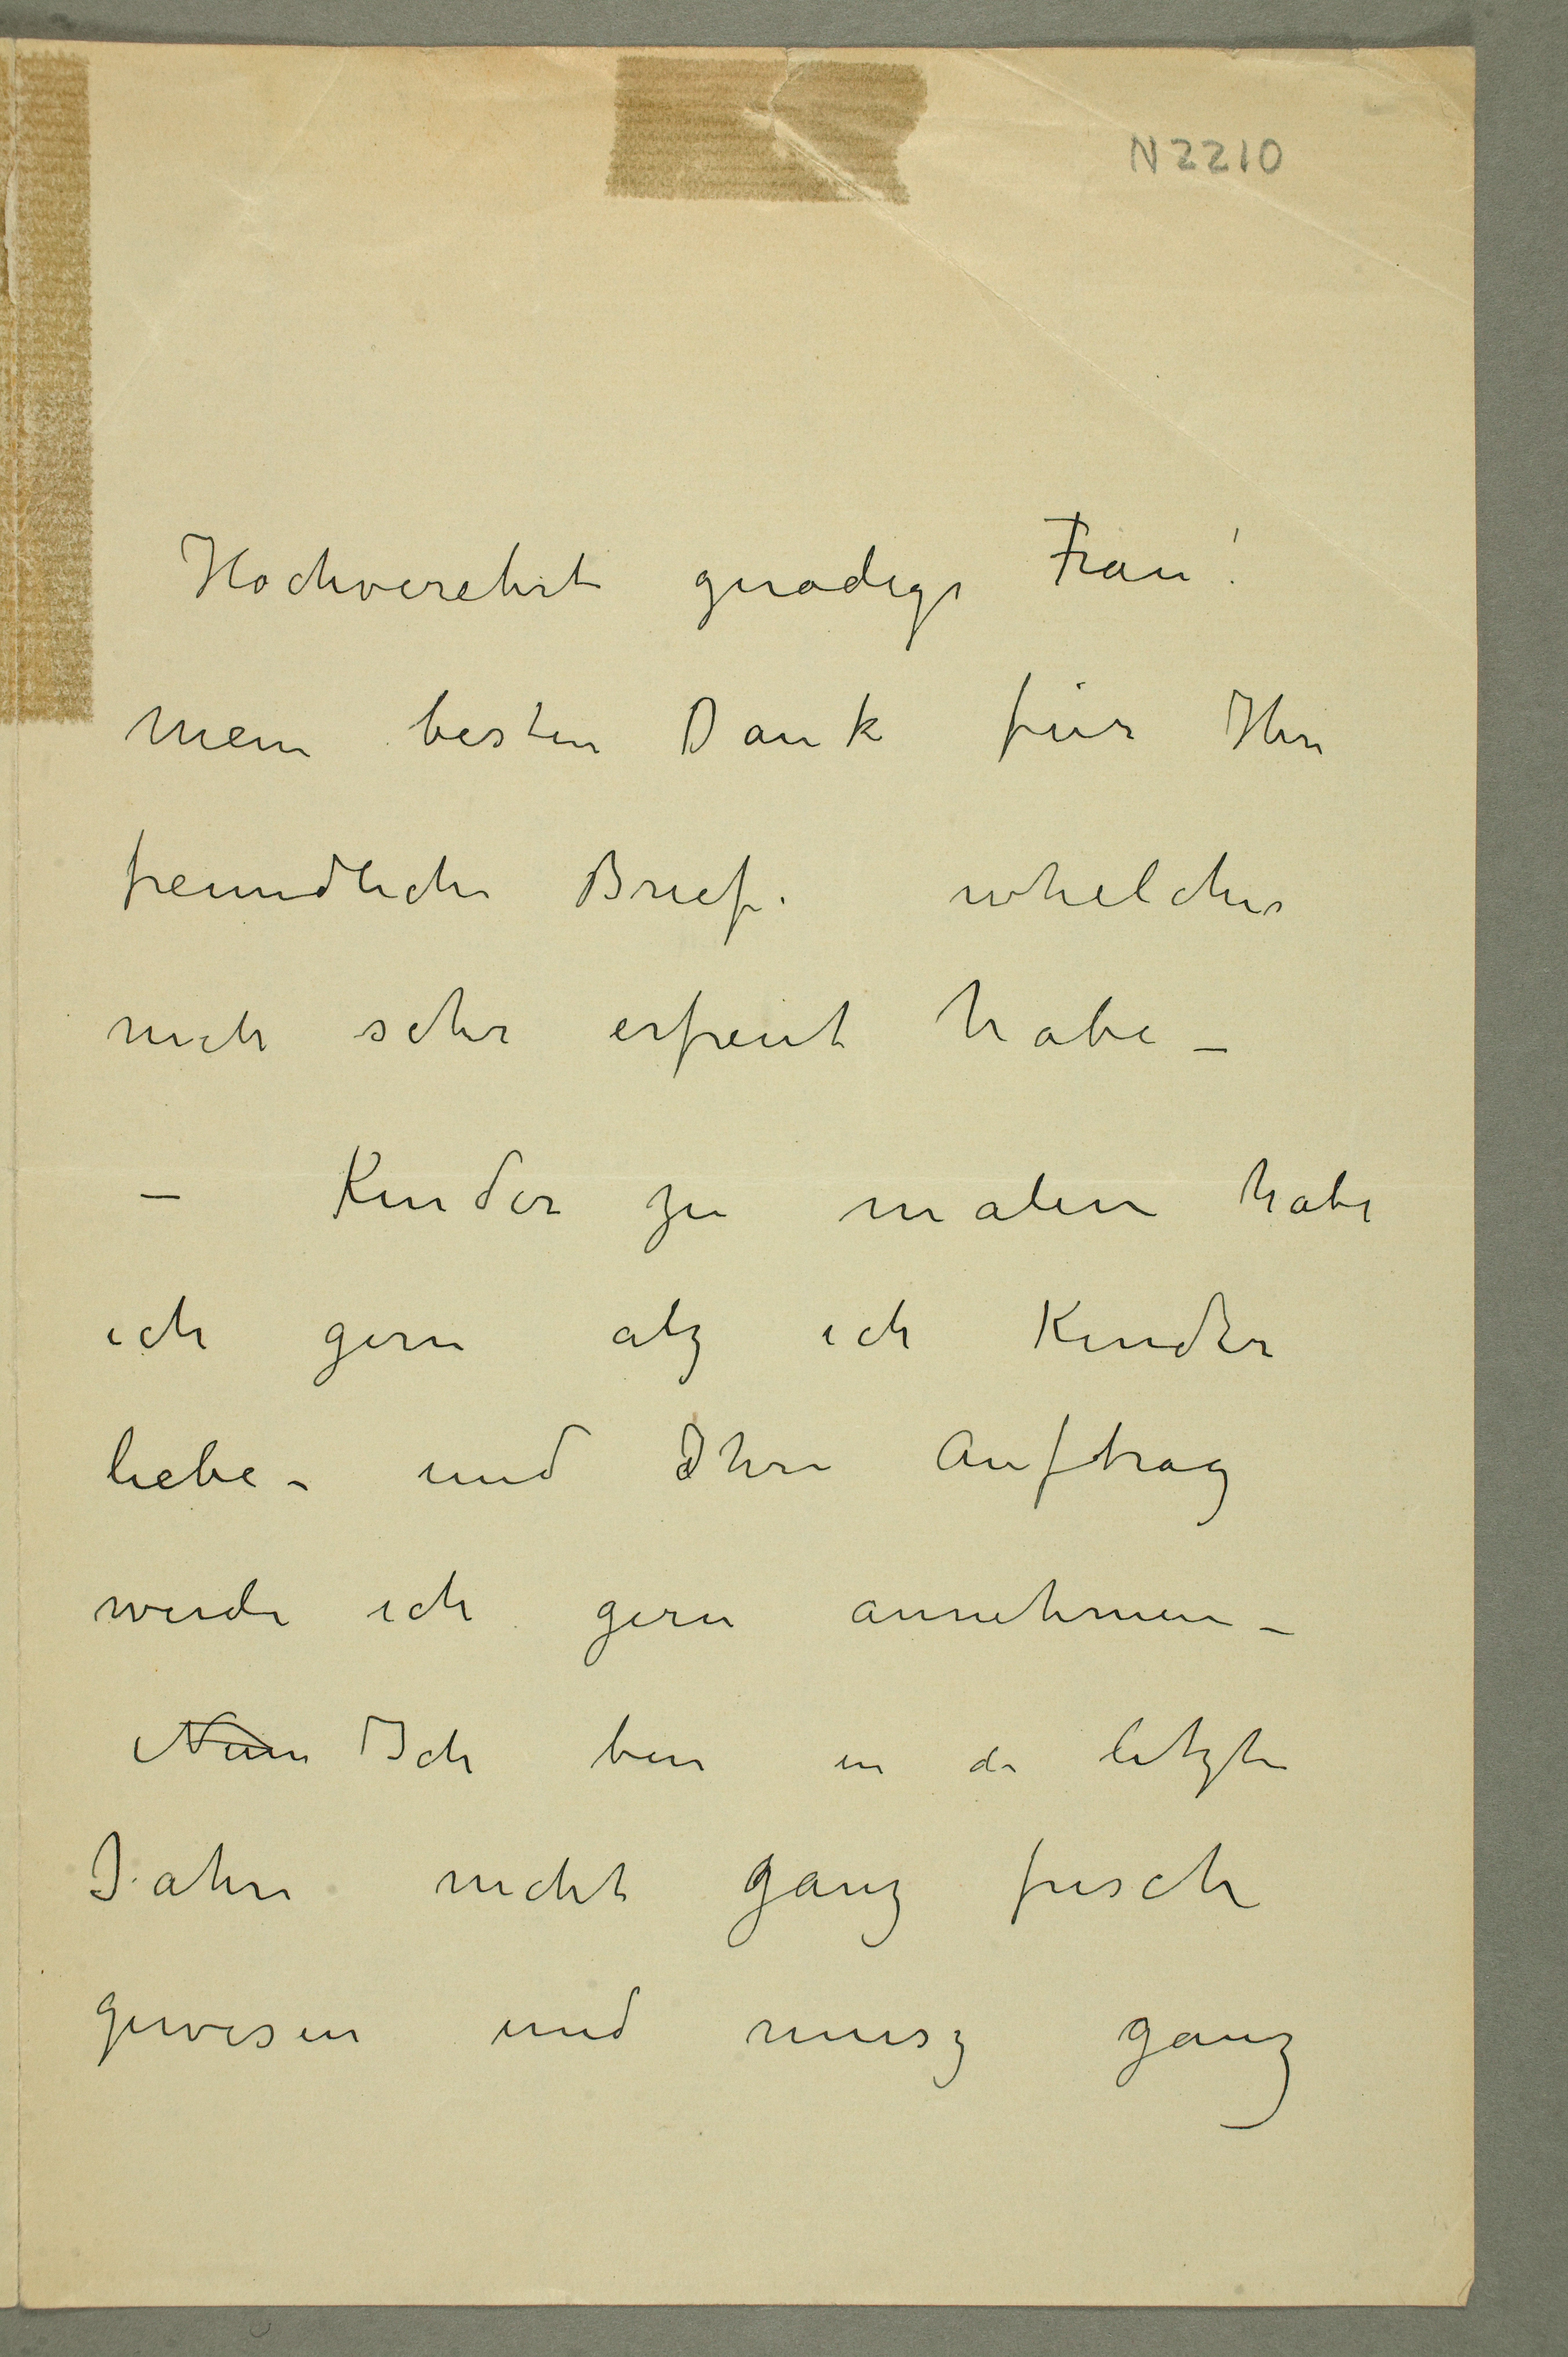 N 2210
Hochverehrte gnadige Frau!
mein besten Dank für Ihre
freundliche Brief. whelches
mich sehr erfreut habe –
– Kinder zu malen habe
ich gern alz ich Kinder
liebe – und Ihre Auftrag
werde ich gern annehmen –
Nun Ich bin in de letzte
Jahre nicht ganz frisch
gewesen und musz ganz